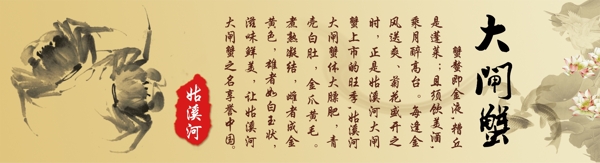 大闸蟹
蟹螯即金液，糟丘
是蓬莱；且须饮美酒，
乘月醉高台。每逢金
风送爽、菊花盛开之
时，正是姑溪河大闸
蟹上市的旺季。姑溪河
大闸蟹体大膘肥，青
亮白肚、金爪黄毛。
煮熟凝结，雌者成金
黄色，雄者如白玉状，
滋味鲜美，让姑溪河
大闸蟹之名享誉中国。
姑溪河